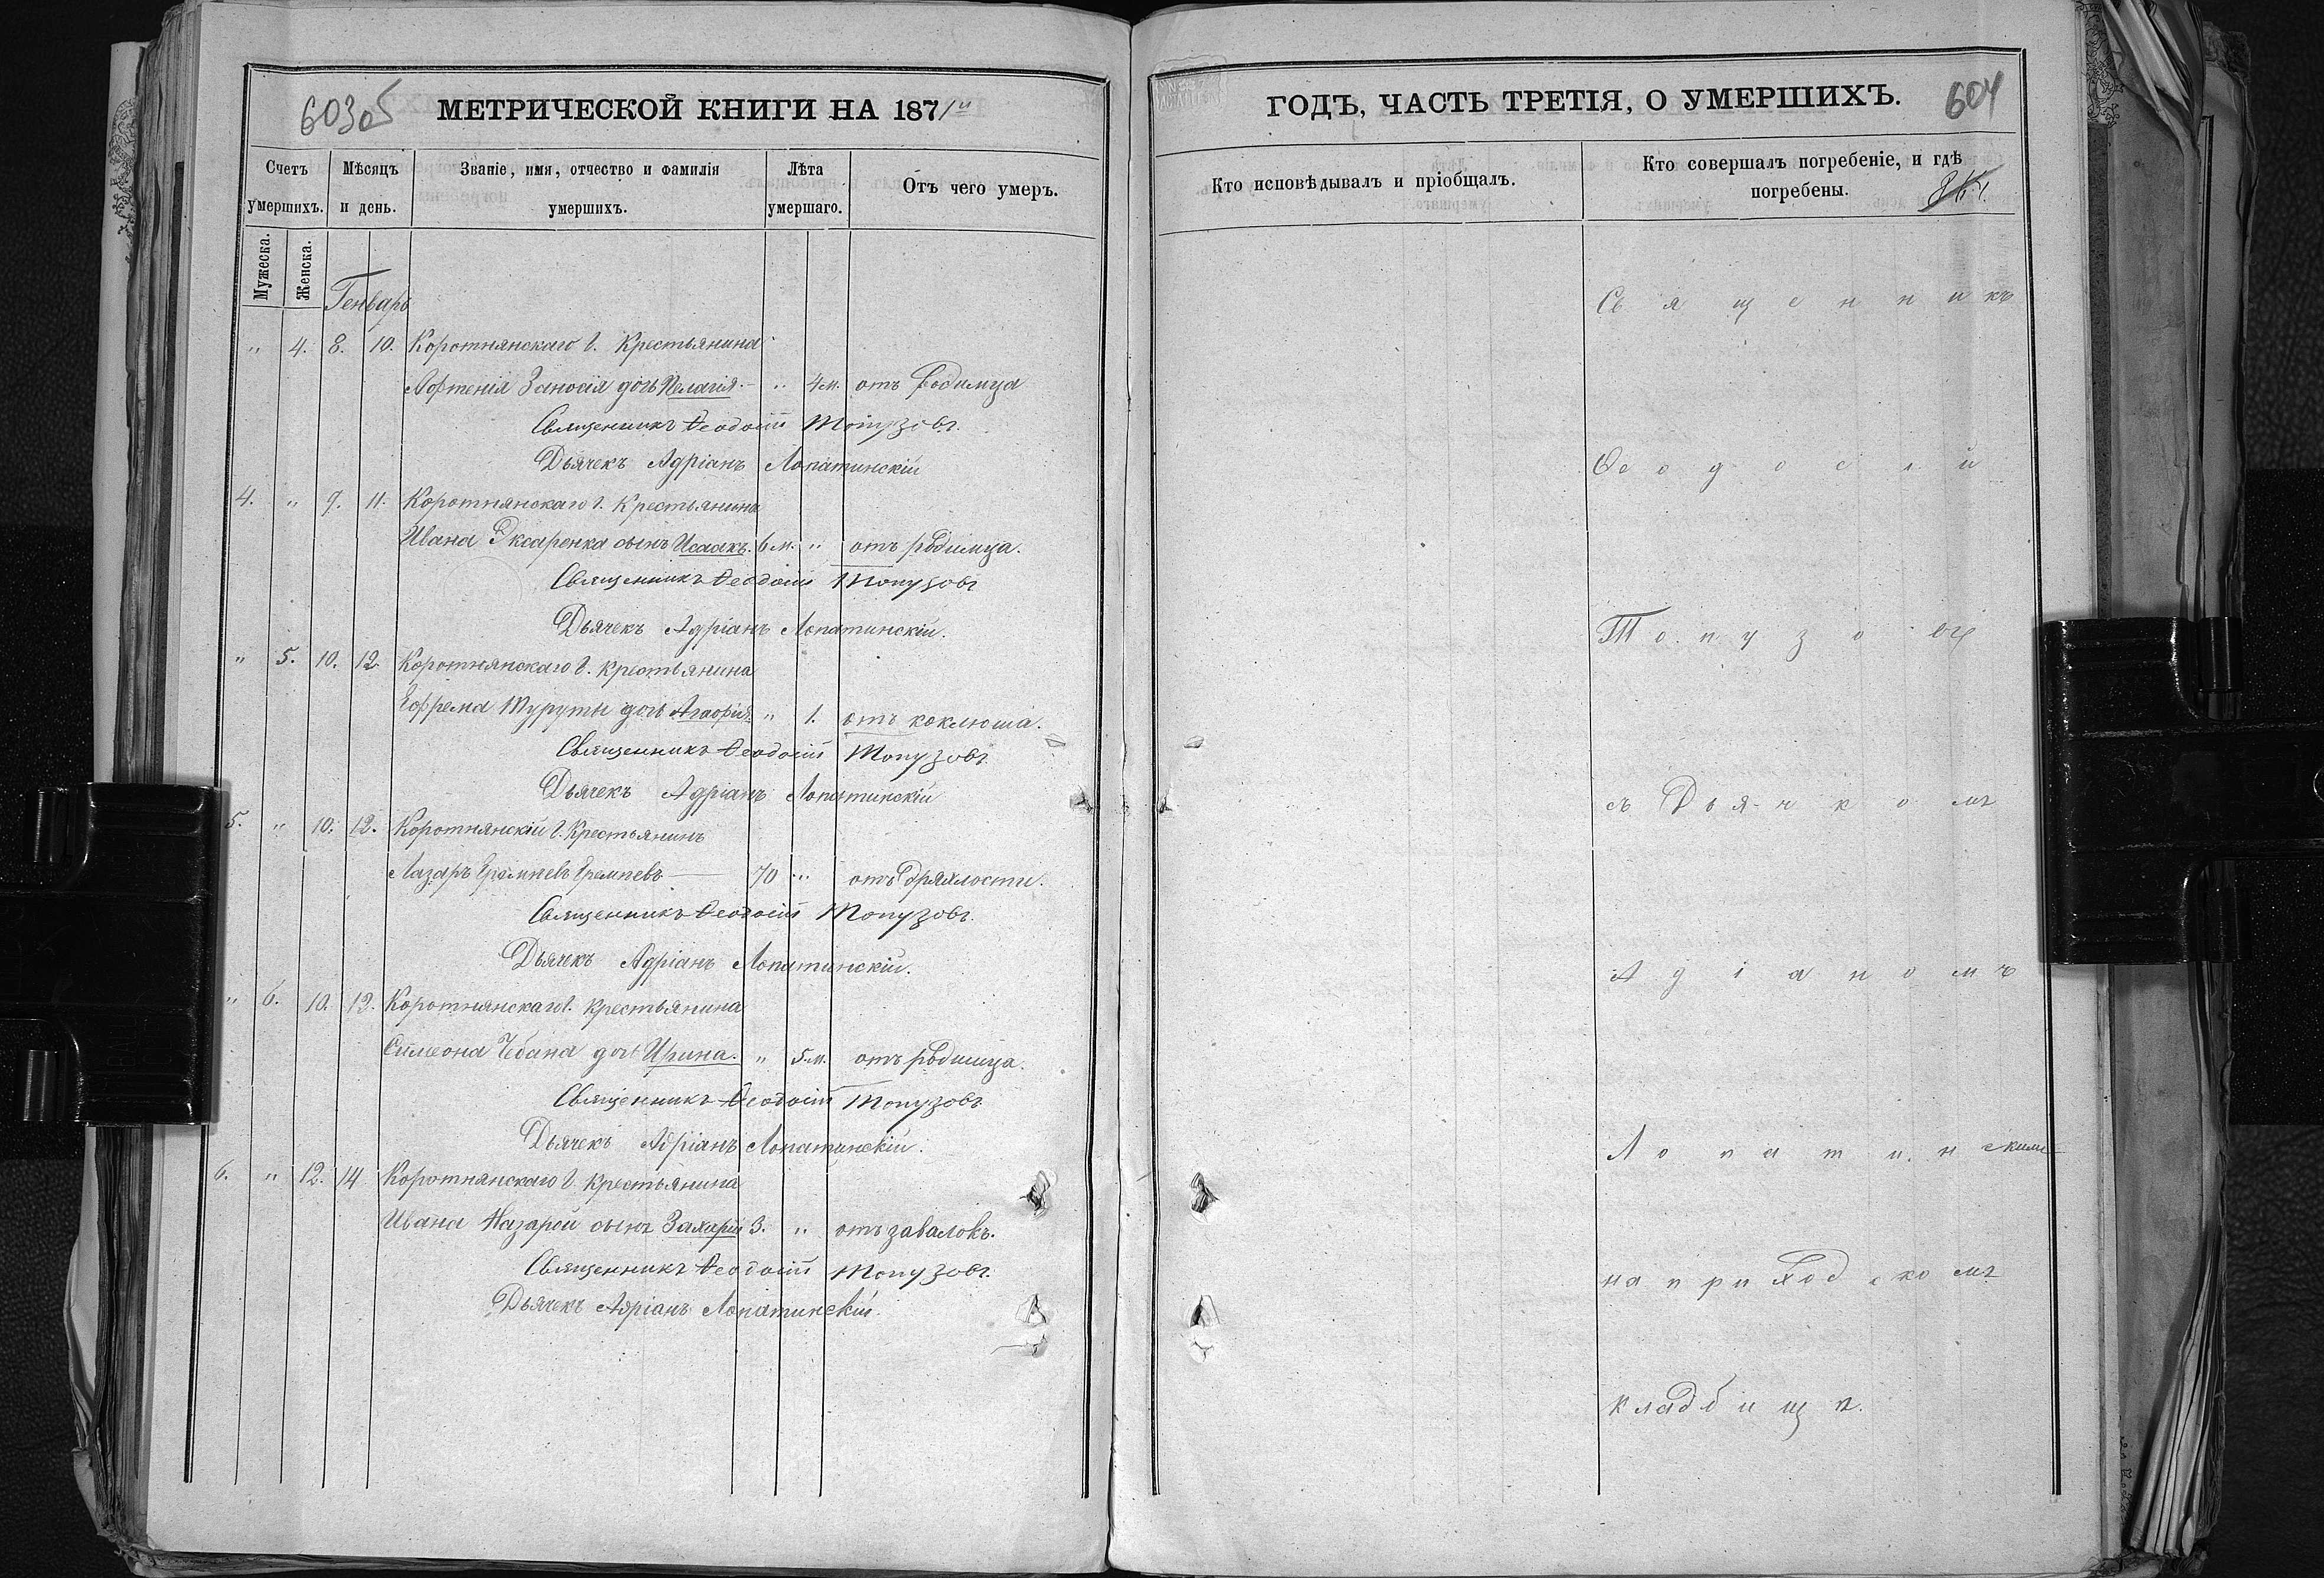 603 об
МЕТРИЧЕСКОЙ КНИГИ НА 1871й
Счетъ умершихъ.
Мѣсяцъ и день.
Званіе, имя, отчество и фамилія умершихъ.
Лѣта умершаго.
Отъ чего умеръ.
Мужеска.
Женска.
Генварь
" 4. 8. 10. Коротнянскаго О. Крестьянина
дочь Пелагія. " 4 м. отъ родимца
Священникъ Ѳеодосій Топузовъ.
Дьячекъ Адріанъ Лопатинскій
4. " 9. 11. Коротнянскаго О. Крестьянина
Ивана сынъ Исаакъ. 6 м. " отъ родимца.
Священникъ Ѳеодосій Топузовъ
Дьячекъ Адріанъ Лопатинскій.
" 5. 10. 12. Коротнянскаго О. Крестьянина
Ефрема Туруты дочь " 1. отъ коклюша.
Священникъ Ѳеодосій Топузовъ
Дьячекъ Адріанъ Лопатинскій
5. " 10. 12. Коротнянскій О. Крестьянинъ
Лазаръ 70 " отъ дряхлости.
Священникъ Ѳеодосій Топузовъ.
Дьячекъ Адріанъ Лопатинскій.
" 6. 10. 12. Коротнянскаго О. Крестьянина
Симеона Чебана дочь Ирина. " 5 м. отъ родимца.
Священникъ Ѳеодосій Топузовъ
Дьячекъ Адріанъ Лопатинскій.
6. " 12. 14 Коротнянскаго О. Крестьянина
Ивана Назарой сынъ Захарій 3. " отъ завалокъ.
Священникъ Ѳеодосій Топузовъ.
Дьячекъ Адріанъ Лопатинскій.
ГОДЪ, ЧАСТЬ ТРЕТІЯ, О УМЕРШИХЪ.
604
Кто исповѣдывалъ и пріобщалъ.
Кто совершалъ погребеніе, и гдѣ погребены.
Священникъ
Ѳеодосій
Топузовъ
съ Дьячкомъ
Адіаномъ
Лопатинскимъ
на приходскомъ
кладбищѣ.